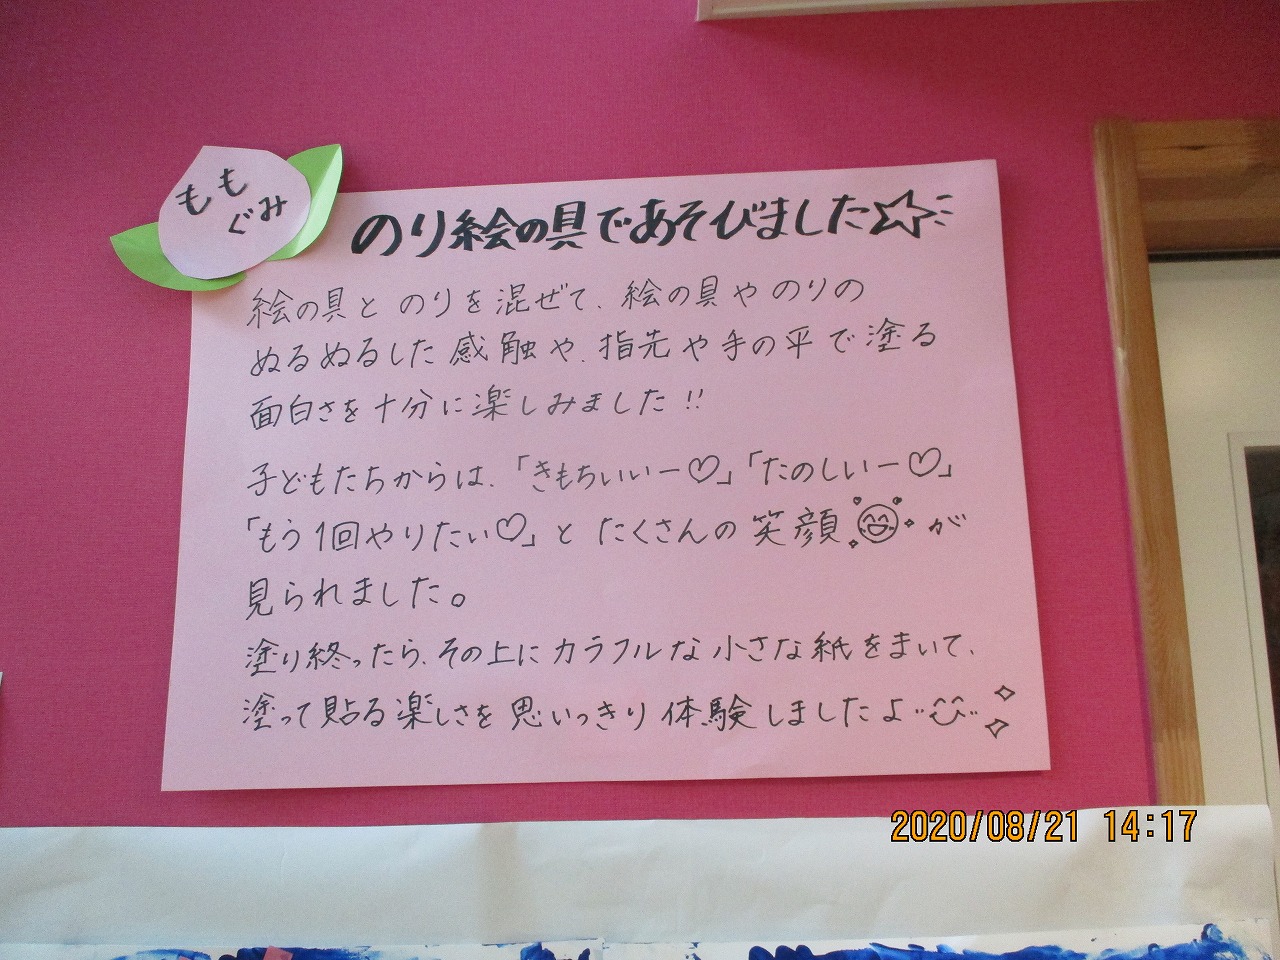 もも
ぐみ
のり絵の具であそびました☆
絵の具とのりを混ぜて、絵の具やのりの
ぬるぬるした感触や、指先や手の平で塗る
面白さを十分に楽しみました!!
子どもたちからは、「きもちいいー♡」「たのしいー♡」
「もう1回やりたい♡」とたくさんの笑顔が
見られました。
塗り終ったら、その上にカラフルな小さな紙をまいて、
塗って貼る楽しさを思いっきり体験しましたよ
2020/08/21 14:17